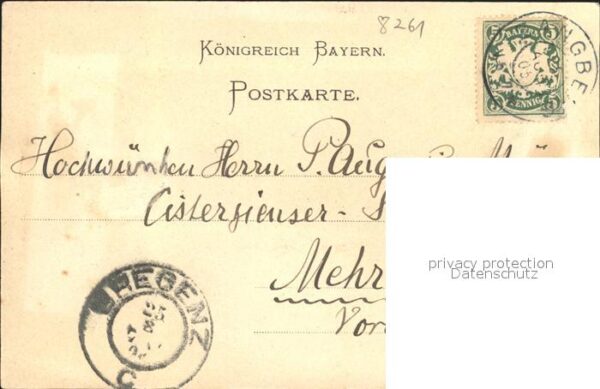 8261
KÖNIGREICH BAYERN.
POSTKARTE.
BAYERN
5 5
PFENNIG
Hochwürden Herrn P. Aug
Cisterzienser-
Mehr
Vor
privacy protection
Datenschutz
BREGENZ
C